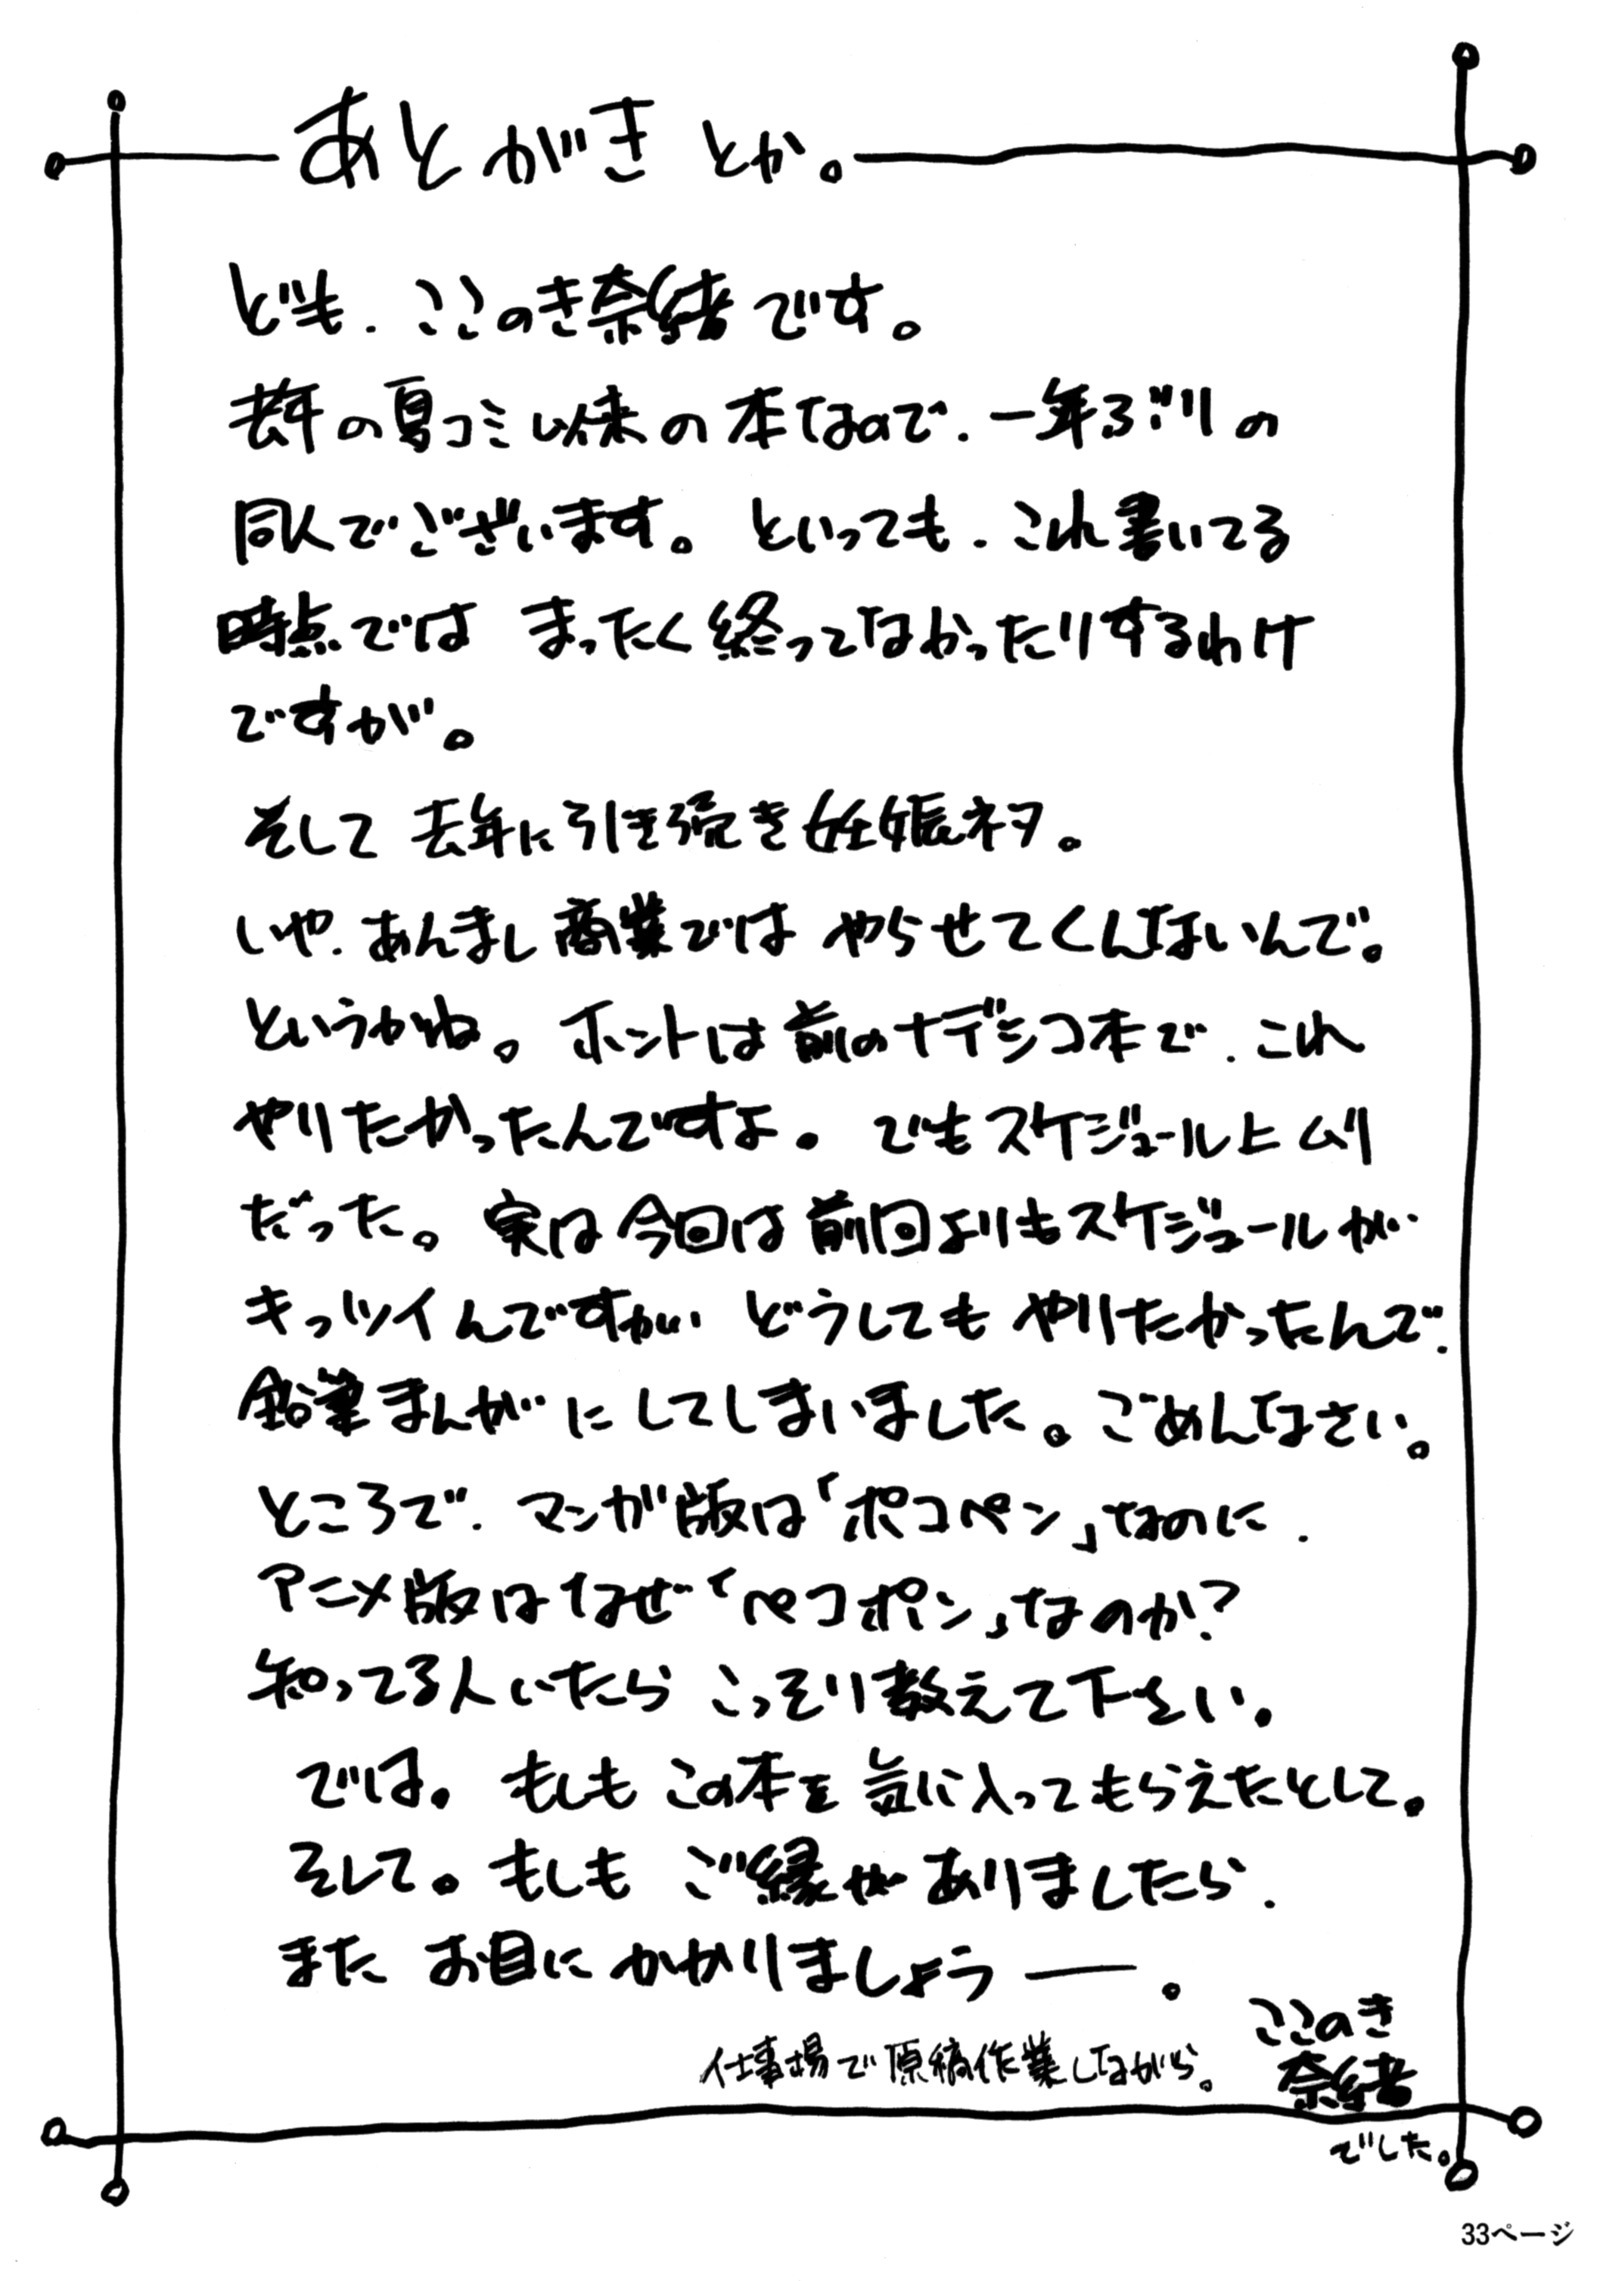 あとがきとか。
ども、ここのき奈緒です。
去年の夏コミ以来の本なので、一年ぶりの
同人でございます。といっても、これ書いてる
時点では まったく終ってなかったりするわけ
ですが。
そして去年に引き続き妊娠ネタ。
いや、あんまし商業では やらせてくんないんで。
というかね。ホントは前のナデシコ本で、これ
やりたかったんですよ。でもスケジュール上ムリ
だった。実は今回は前回よりもスケジュールが
キっツイんですがい どうしても やりたかったんで、
鉛筆まんがにしてしまいました。ごめんなさい。
ところで、マンガ版は「ポコペン」なのに、
アニメ版はなぜ「ペコポン」なのか?
知ってる人いたら こっそり教えて下さい。
では。もしも この本を 気に入ってもらえたとして。
そして。もしも ご縁がありましたら、
また お目に かかりましょうー。
仕事場で原稿作業しながら。
ここのき
奈緒
でした。
33ページ